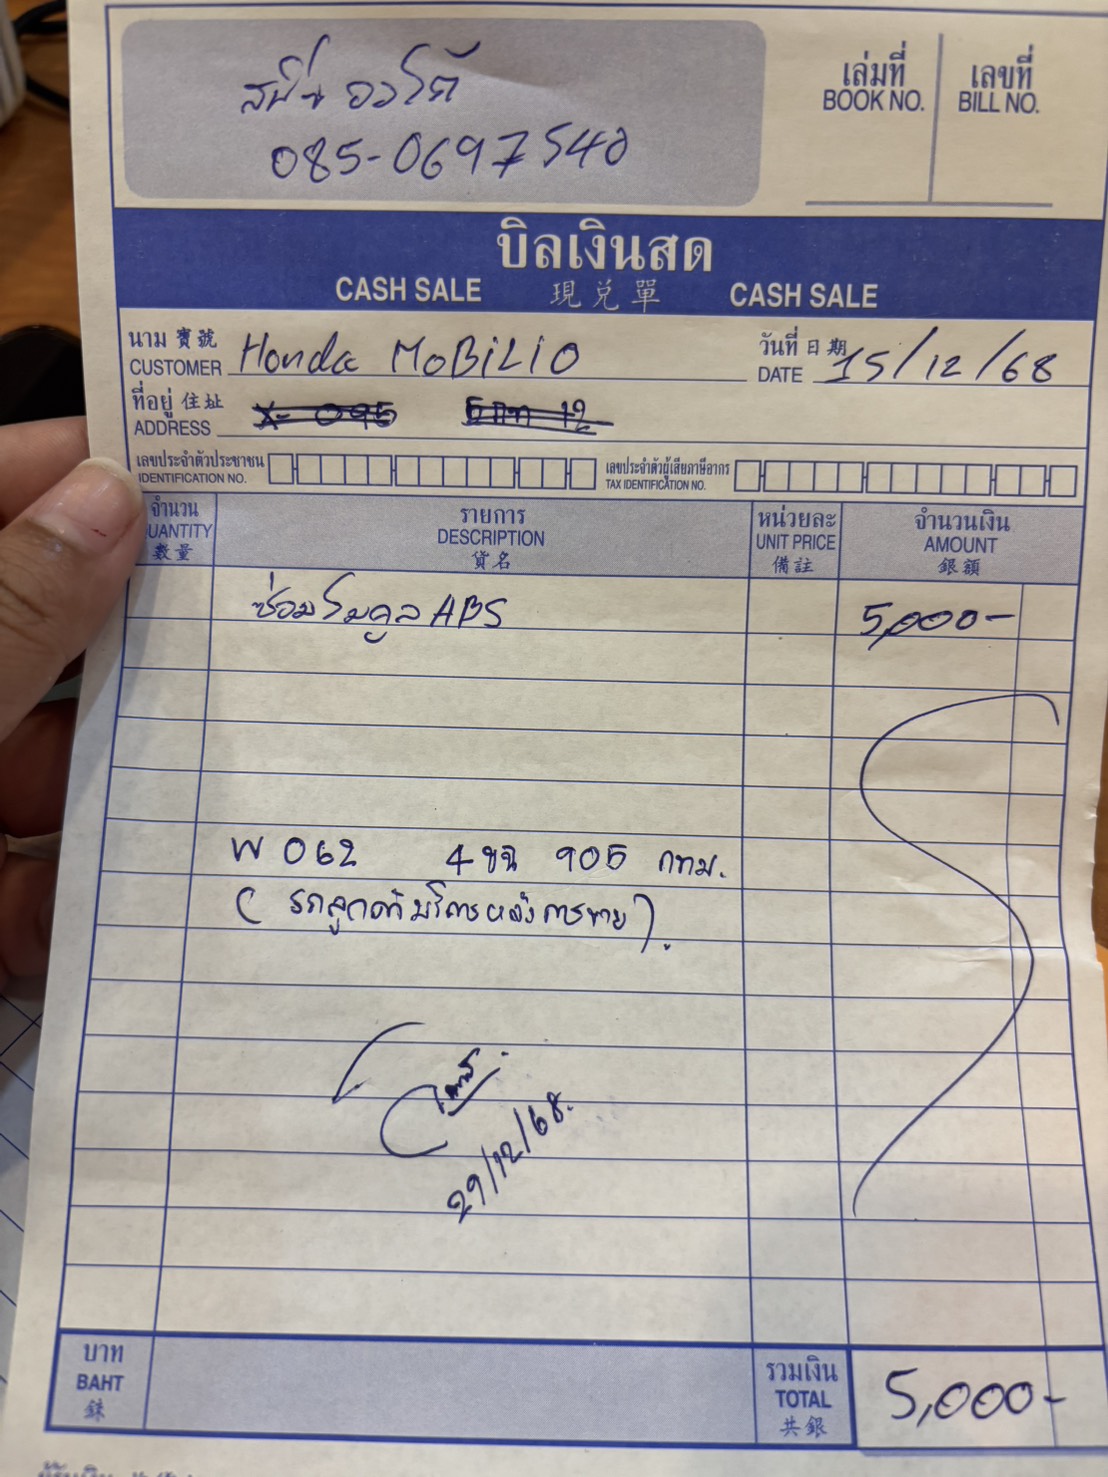 สปีช ออโต้
085-0697540
เล่มที่
BOOK NO.
เลขที่
BILL NO.
บิลเงินสด
CASH SALE 現兌單 CASH SALE
นาม 寶號
CUSTOMER Honda MOBILIO
วันที่ 日期
DATE 15/12/68
ที่อยู่ 住址
ADDRESS
เลขประจำตัวประชาชน
IDENTIFICATION NO.
เลขประจำตัวผู้เสียภาษีอากร
TAX IDENTIFICATION NO.
จำนวน
QUANTITY
數量
รายการ
DESCRIPTION
貨名
หน่วยละ
UNIT PRICE
備註
จำนวนเงิน
AMOUNT
銀額
ซ่อมโมดูล ABS 5,000-
W 062 4ขฉ 905 กทม.
(รถลูกค้าบริการหลังการขาย).
29/12/68.
บาท
BAHT
銖
รวมเงิน
TOTAL
共銀
5,000-